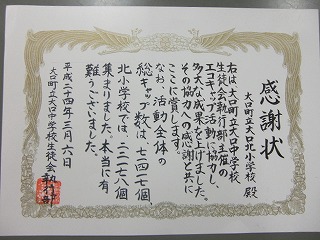 感謝状
大口町立大口北小学校 殿
右は大口町立大口中学校
生徒会執行部主催の
エコキャップ活動に協力し、
多大な成果を上げました。
その協力への感謝と共に
ここに賞します。
なお、活動全体の
総キャップ数は、七四七個、
北小学校では、二二七八個
集まりました。本当に有
難うございました。
平成二十四年三月六日
大口町立大口中学校生徒会執行部